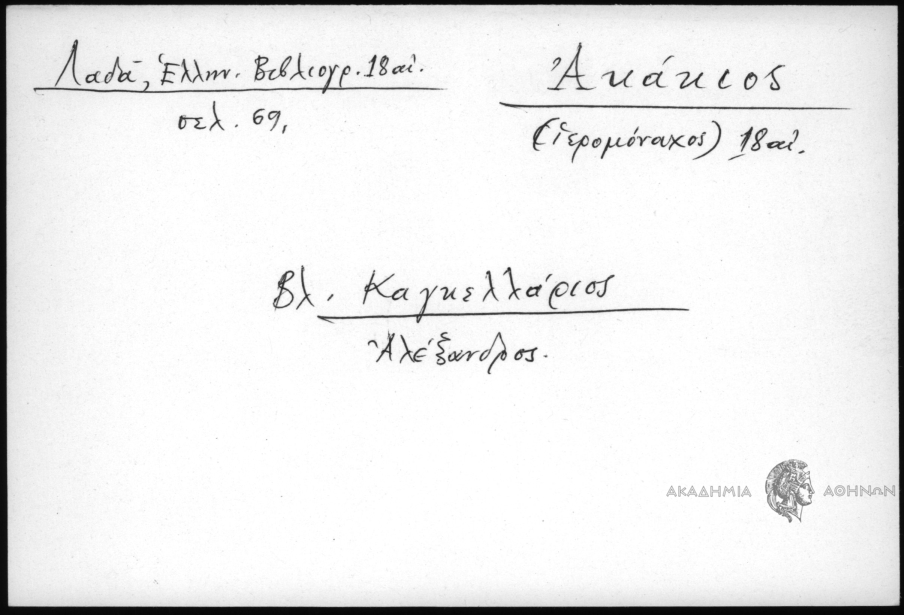 Λαδᾶ, Ἑλλην. Βιβλιογρ. 18 αἰ.
σελ. 69,
Ἀκάκιος
(ἱερομόναχος) 18 αἰ.
Βλ. Καγκελλάριος
Ἀλέξανδρος.
ΑΚΑΔΗΜΙΑ ΑΘΗΝΩΝ